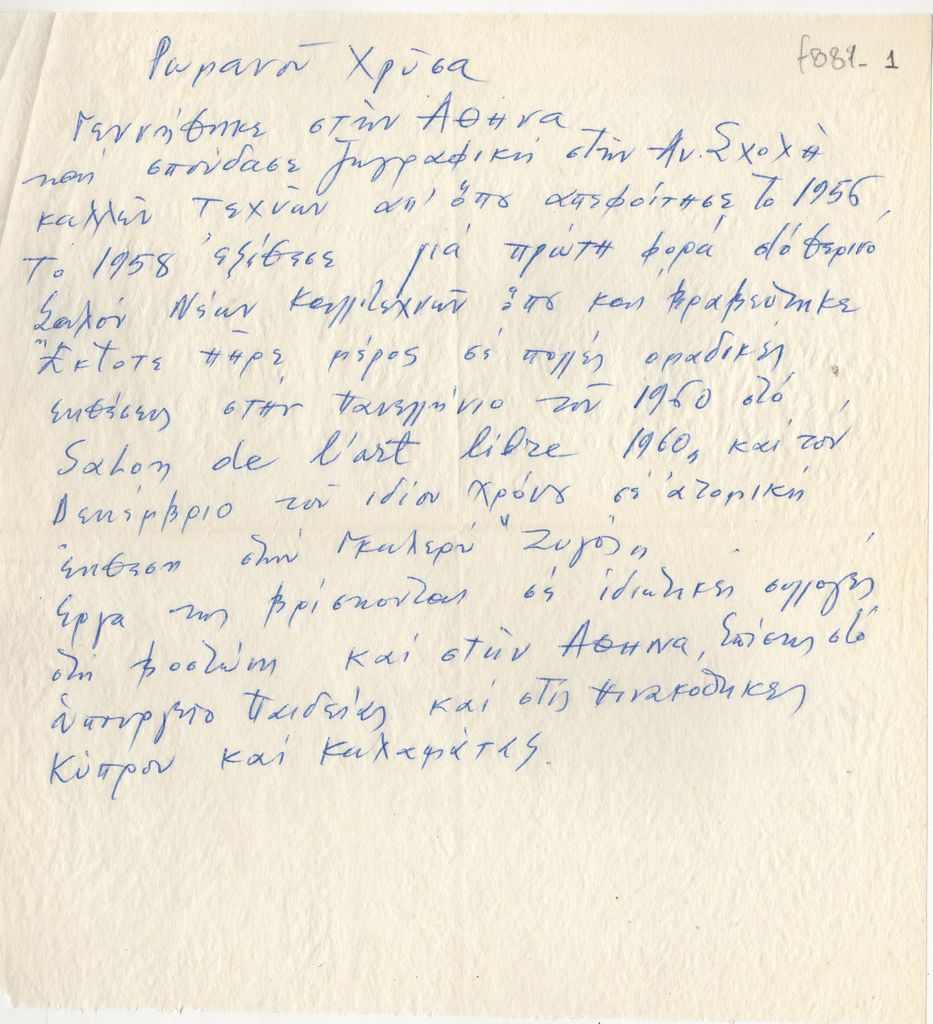 Ρωμανοῦ Χρύσα
f881- 1
Γεννήθηκε στὴν Αθηνα
καί σπούδασε ζωγραφική στὴν Αν. Σχολὴ
καλλῶν Τεχνῶν απ' ὅπου απεφοίτησε το 1956
Το 1958 ἐξέθεσε γιά πρώτη φορά στό θερινό
Σαλόν Νέων Καλλιτεχνῶν ὅπου και βραβεύτηκε
Ἔκτοτε πῆρε μέρος σέ πολλές ομαδικές
εκθέσεις στὴν Πανελλήνιο τοῦ 1960 στό
Salon de l'art libre 1960, καί τόν
Δεκέμβριο τοῦ ιδίου χρόνου σέ ἀτομική
ἔκθεση στὴν Γκαλερύ "Ζυγός"
Εργα της βρίσκονται σέ ἰδιωτικές συλλογές
στὴ Βοστώνη καί στὴν Αθηνα, Ἐπίσης στό
ὑπουργεῖο Παιδείας καί στὶς πινακοθηκες
Κύπρου καί Καλαμάτας.